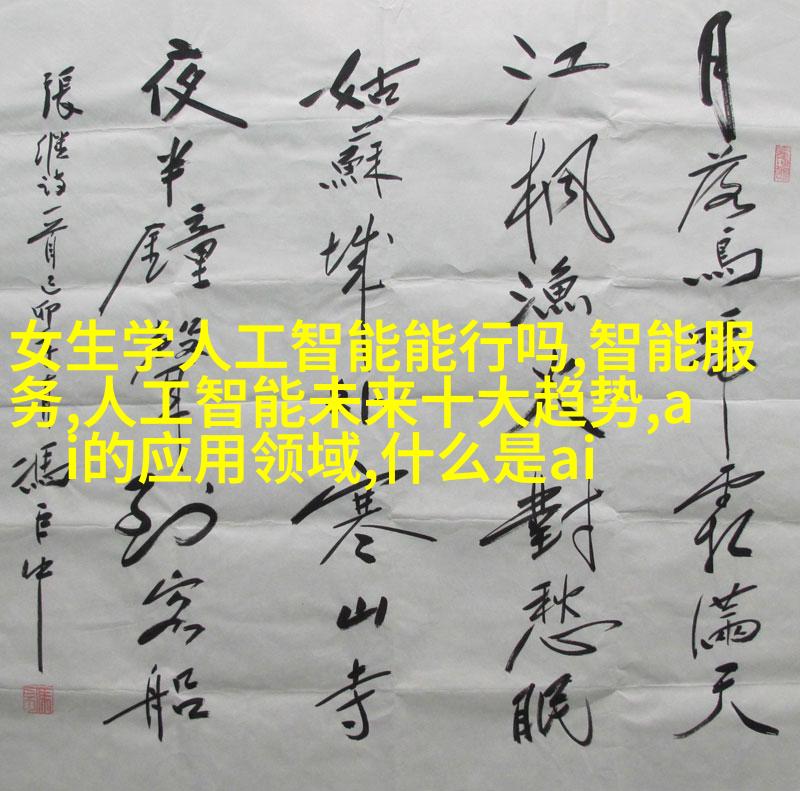 月落烏啼霜滿天
江楓漁火對愁眠
姑蘇城外寒山寺
夜半鐘聲到客船
張繼詩一首己卯
女生学人工智能能行吗,智能服
务,人工智能未来十大趋势,a
i的应用领域,什么是ai